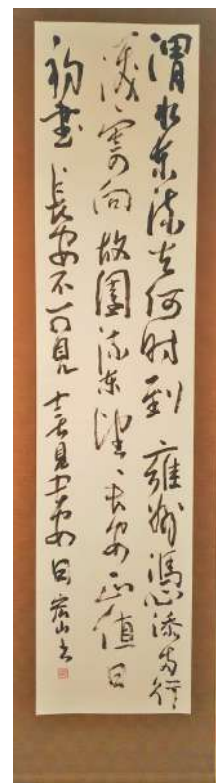 渭水東流去何时到雍州憑添兩行
淚寄向故園流東望々長安正值日
初出長安不可見喜見長安日宏山書